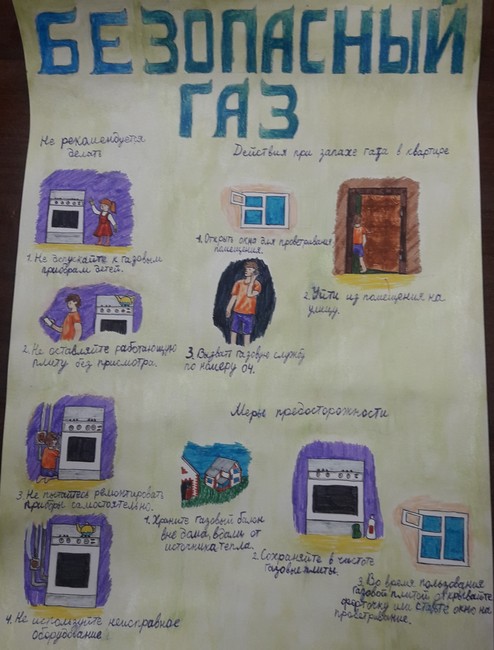 БЕЗОПАСНЫЙ
ГАЗ
Не рекомендуется
делать
1. Не допускайте к газовым
приборам детей.
2. Не оставляйте работающую
плиту без присмотра.
3. Не пытайтесь ремонтировать
приборы самостоятельно.
4. Не используйте неисправное
оборудование
Действия при запахе газа в квартире
1. Открыть окна для проветривания
помещения.
2. Уйти из помещения на
улицу.
3. Вызвать газовую службу
по номеру 04.
Меры предосторожности
1. Хранить газовый балон
вне дома, вдали от
источника тепла.
2. Сохраняйте в чистоте
газовые плиты.
3. Во время пользования
газовой плитой открывайте
форточку или ставьте окно на
проветривание.